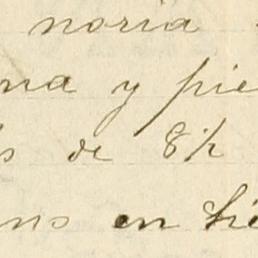 noria
na y pie
s de 8½
ns en tie